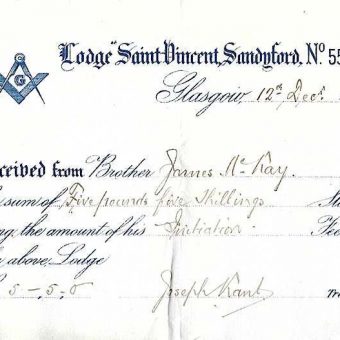 G
Lodge "Saint Vincent, Sandyford, No 55
Glasgow, 12th Decr
ceived from Brother James Mc Kay
sum of Five pounds five Shillings St
ng the amount of his Initiation Fee
above, Lodge
5-, 5, 0 Joseph Kant